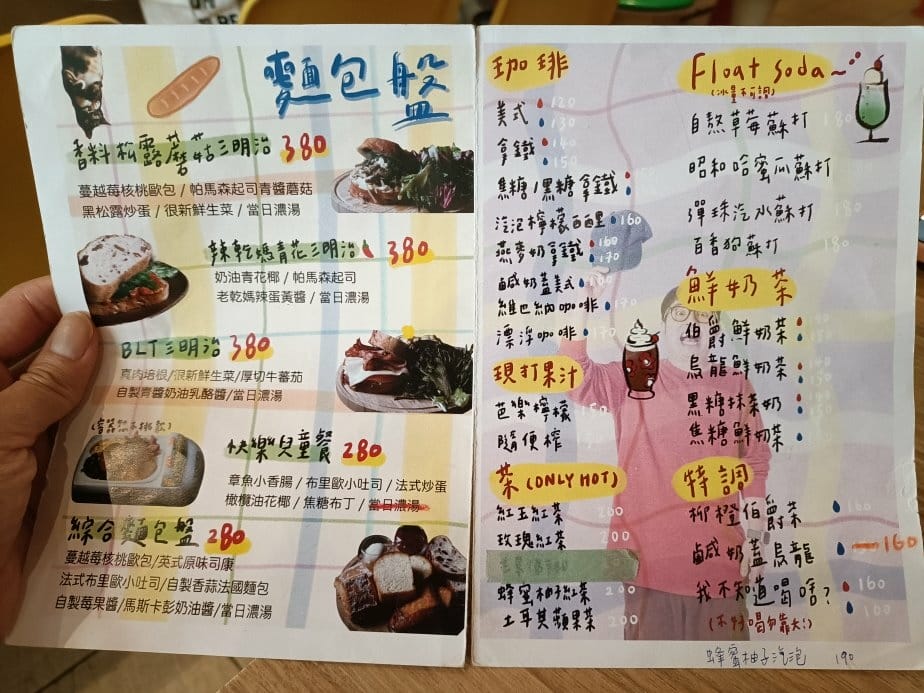 麵包盤
香料松露蘑菇三明治 380
蔓越莓核桃歐包 / 帕馬森起司青醬蘑菇
黑松露炒蛋 / 很新鮮生菜 / 當日濃湯
辣乾媽青花三明治 380
奶油青花椰 / 帕馬森起司
老乾媽辣蛋黃醬 / 當日濃湯
BLT三明治 380
真肉培根/很新鮮生菜/厚切牛蕃茄
自製青醬奶油乳酪醬/當日濃湯
快樂兒童餐 280
章魚小香腸 / 布里歐小吐司 / 法式炒蛋
橄欖油花椰 / 焦糖布丁 / 當日濃湯
綜合麵包盤 280
蔓越莓核桃歐包/英式原味司康
法式布里歐小吐司/自製香蒜法國麵包
自製莓果醬/馬斯卡彭奶油醬/當日濃湯
珈琲
美式 120
130
拿鐵 140
150
焦糖/黑糖拿鐵
汽泡檸檬西西里 160
燕麥奶拿鐵 160
170
鹹奶蓋美式
維也納咖啡 170
漂浮咖啡 170
現打果汁
芭樂檸檬 150
隨便榨 200
茶(ONLY HOT)
紅玉紅茶 200
玫瑰紅茶
蜂蜜柚子紅茶 200
土耳其蘋果茶 200
Float Soda~
(冰量不可調)
自熬草莓蘇打 180
昭和哈蜜瓜蘇打
彈珠汽水蘇打 180
百香狗蘇打 180
鮮奶茶
伯爵鮮奶茶
烏龍鮮奶茶
黑糖抹茶奶
焦糖鮮奶茶
特調
柳橙伯爵茶 160
鹹奶蓋烏龍 160
我不知道喝啥? 160
160
(不好喝勿靠夭!)
蜂蜜柚子汽泡 190